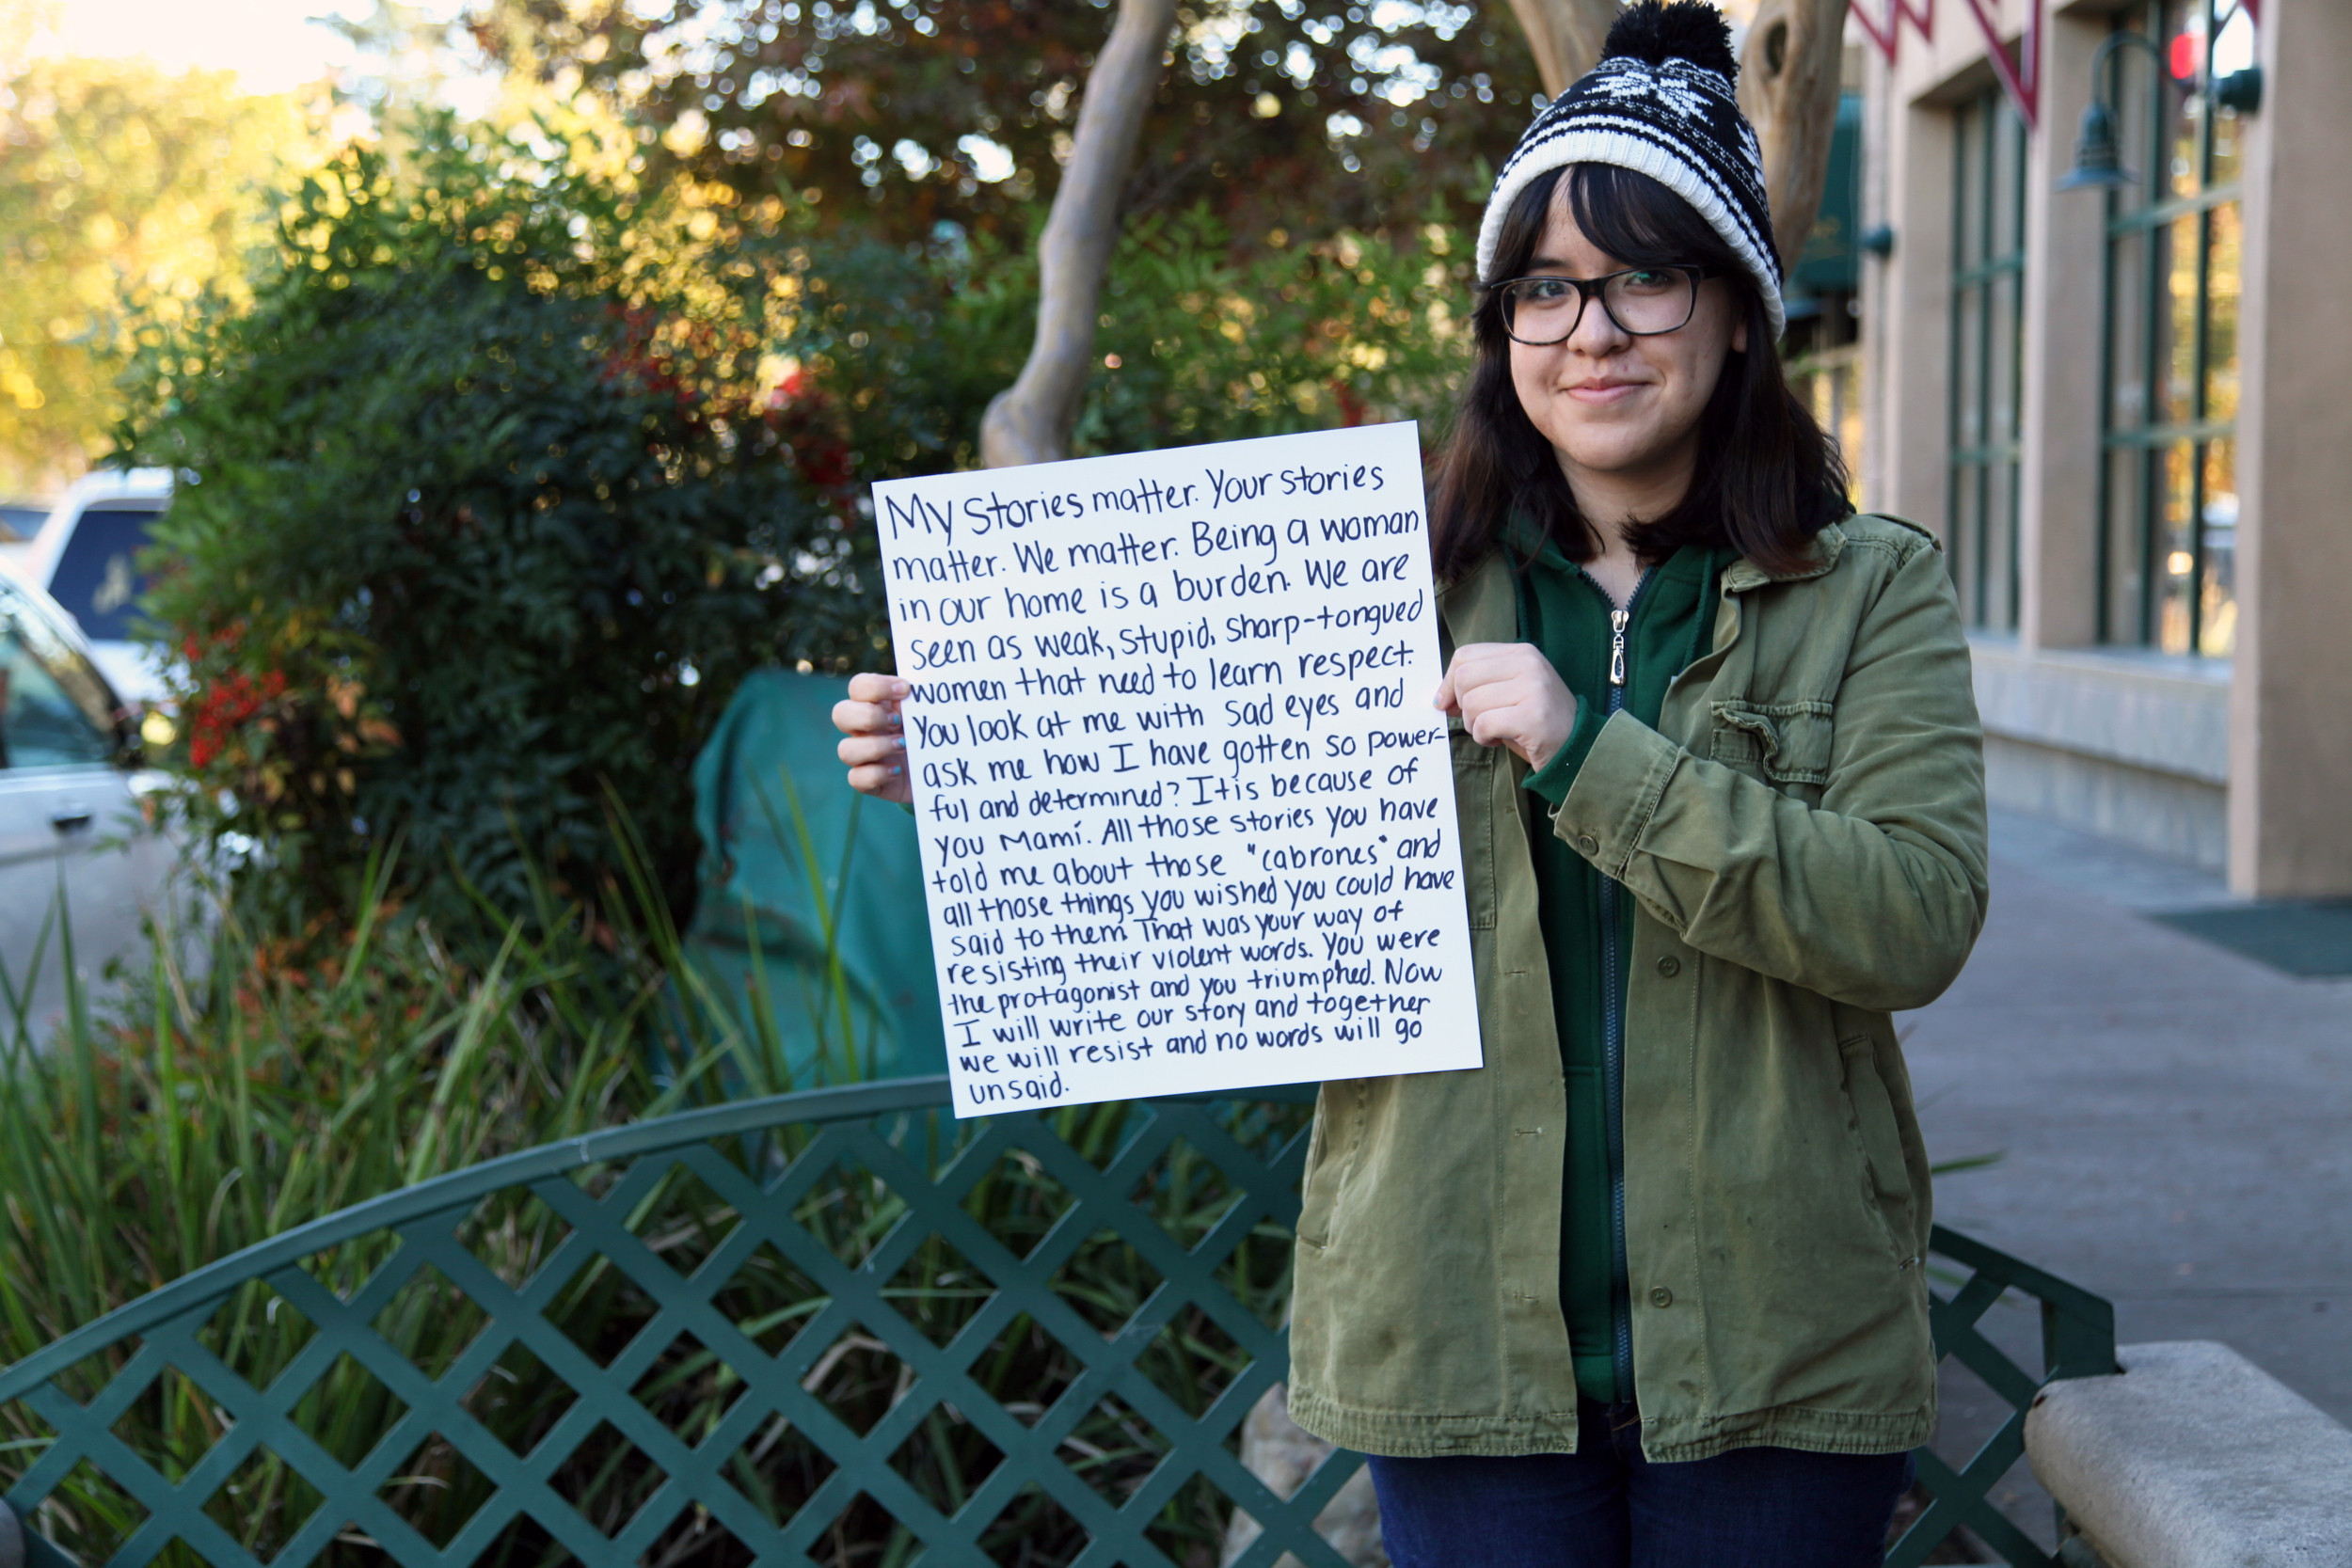 My stories matter. Your stories
matter. We matter. Being a woman
in our home is a burden. We are
seen as weak, stupid, sharp-tongued
women that need to learn respect.
You look at me with sad eyes and
ask me how I have gotten so power-
ful and determined? It is because of
you Mamí. All those stories you have
told me about those "cabrones" and
all those things you wished you could have
said to them. That was your way of
resisting their violent words. You were
the protagonist and you triumphed. Now
I will write our story and together
we will resist and no words will go
unsaid.